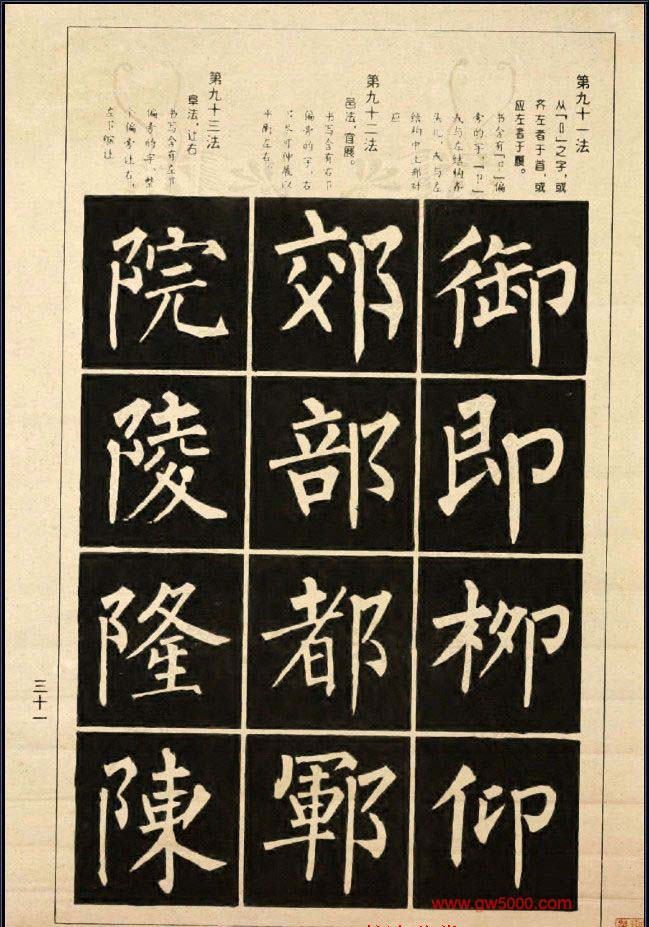 第九十一法
从「卩」之字，或
齐左者于首，或
应左者于履。
书含有「卩」偏
旁的字，「卩」
或与左结构齐
头儿，或与左
结构中上部对
应
第九十二法
邑法，宜展。
书写含有右阝
偏旁的字，右
阝尽可伸展以
平衡左右
第九十三法
阜法，让右
书写含有左阝
偏旁的字，整
个偏旁让右，
左下缩让
御
即
柳
仰
郊
部
都
鄆
院
陵
隆
陳
三十一
www.gw5000.com